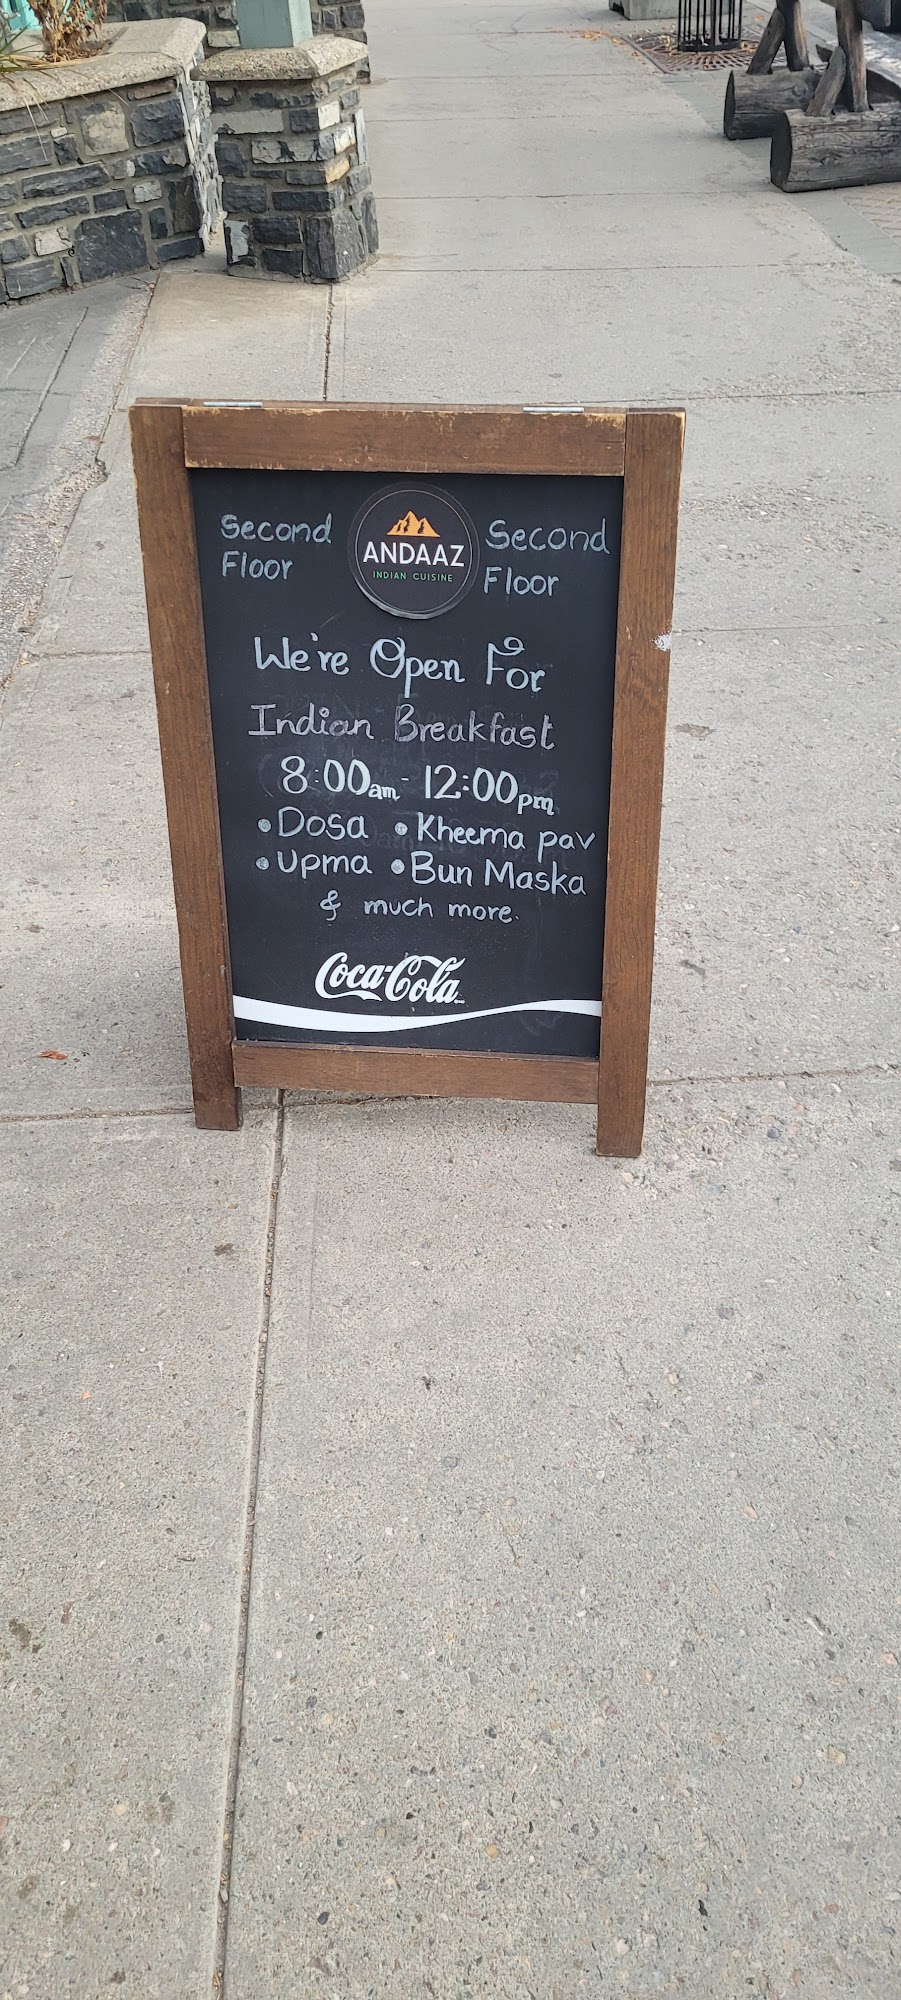 Second Floor
ANDAAZ
INDIAN CUISINE
Second Floor
We're Open For
Indian Breakfast
8:00am - 12:00pm
• Dosa • Kheema pav
• Upma • Bun Maska
& much more.
Coca-Cola